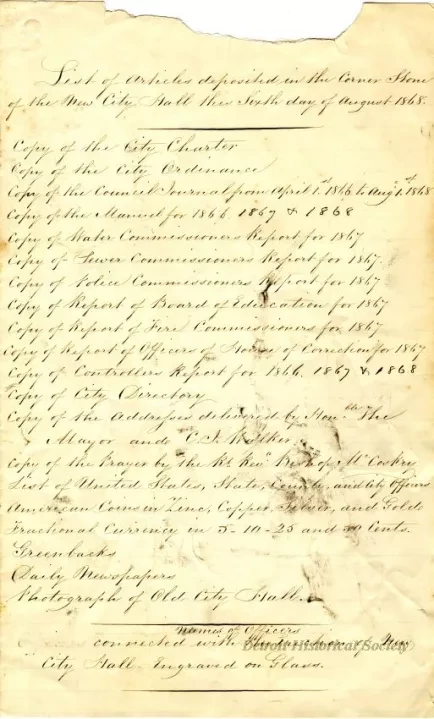 List of Articles deposited in the Corner Stone
of the New City Hall this Sixth day of August 1868.
Copy of the City Charter
Copy of the City Ordinance
Copy of the Council Journal from April 1st 1866 to Augt 1st 1868
Copy of the Manuel for 1866, 1867 & 1868
Copy of Water Commissioners Report for 1867
Copy of Sewer Commissioners Report for 1867.
Copy of Police Commissioners Report for 1867
Copy of Report of Board of Education for 1867
Copy of Report of Fire Commissioners for 1867
Copy of Report of Officers of House of Correction for 1867
Copy of Controllers Report for 1866, 1867 & 1868
Copy of City Directory
Copy of the Addresses delivered by Honble The
Mayor and C. I. Walker.
Copy of the Prayer by the Rt Revd Bishop McCoskey
List of United States, State, County, and City Officers
American Coins in Zinc, Copper, Silver, and Gold
Fractional Currency in 5-10-25 and 50 Cents.
Greenbacks
Daily Newspapers
Photograph of Old City Hall.
Names of Officers
connected with of New
City Hall - Engraved on Glass.
Detroit Historical Society